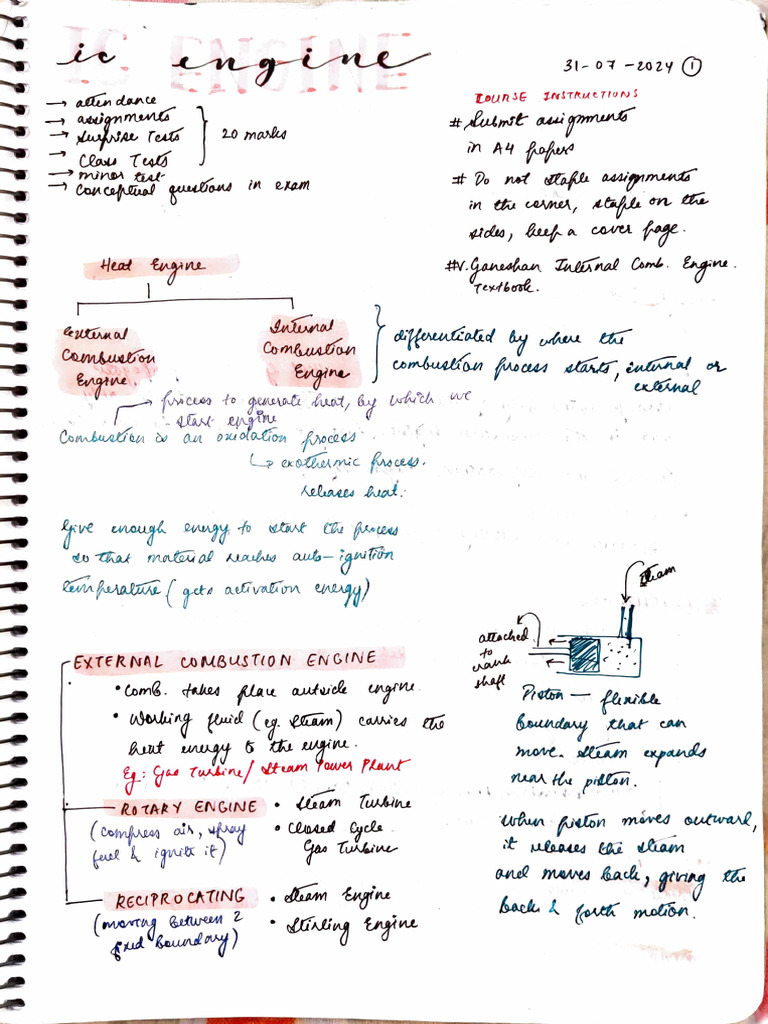 ic engine
31-07-2024 ①
→ attendance
→ assignments
→ Surprise Tests
→ Class Tests
20 marks
→ minor test
→ conceptual questions in exam
COURSE INSTRUCTIONS
# Submit assignments
in A4 papers
# Do not staple assignments
in the corner, staple on the
sides, keep a cover page.
#V. Ganeshan Internal Comb. Engine.
Textbook.
Heat Engine
External
Combustion
Engine.
Internal
Combustion
Engine
differentiated by where the
combustion process starts, internal or
external
process to generate heat, by which we
start engine
Combustion is an oxidation process
↳ exothermic process.
releases heat.
Give enough energy to start the process
so that material reaches auto-ignition
temperature (gets activation energy)
EXTERNAL COMBUSTION ENGINE
• Comb. takes place outside engine.
• Working fluid (eg. Steam) carries the
heat energy to the engine.
Eg: Gas Turbine/ Steam Power Plant
ROTARY ENGINE
(compress air, spray
fuel & ignite it)
• Steam Turbine
• Closed Cycle
Gas Turbine
RECIPROCATING
(moving between 2
fixed boundary)
• Steam Engine
• Stirling Engine
steam
attached
to
crank
shaft
Piston — flexible
boundary that can
move. Steam expands
near the piston.
When piston moves outward,
it releases the steam
and moves back, giving the
back & forth motion.